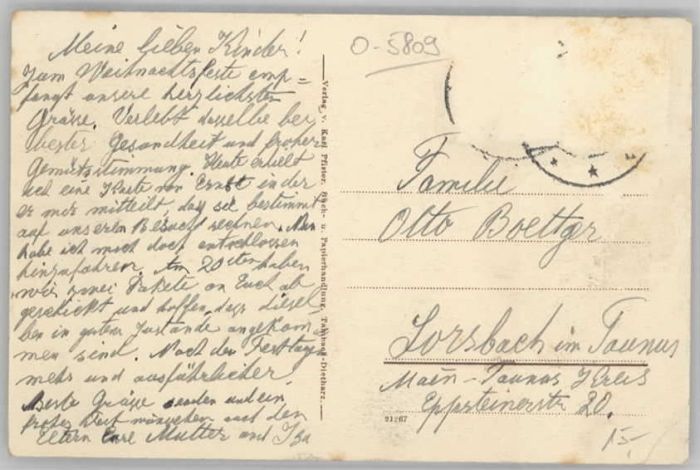 Meine lieben Kinder!
Zum Weihnachtsfeste emp=
fangt unsere herzlichsten
Grüße. Verlebt dasselbe bei
bester Gesundheit und froher
Gemütsstimmung. Heute erhielt
ich eine Karte von Ernst in der
er mir mitteilt, daß sie bestimmt
auf unseren Besuch rechnen. Nun
habe ich mich doch entschlossen
hinzufahren. Am 20ten haben
wir zwei Pakete an Euch ab
geschickt und hoffen, dass diesel
ben in gutem Zustande angekom
men sind. Nach den Festtagen
mehr und ausführlicher.
Beste Grüße senden und ein
frohes Fest wünschen auch den
Eltern Eure Mutter und
Verlag v. Karl Pfister, Buch- u. Papierhandlung, Tambach-Dietharz.
O-5809
Familie
Otto Boettger
Lorsbach im Taunus
Main-Taunus Kreis
Eppsteinerstr 20.
91267
15,-